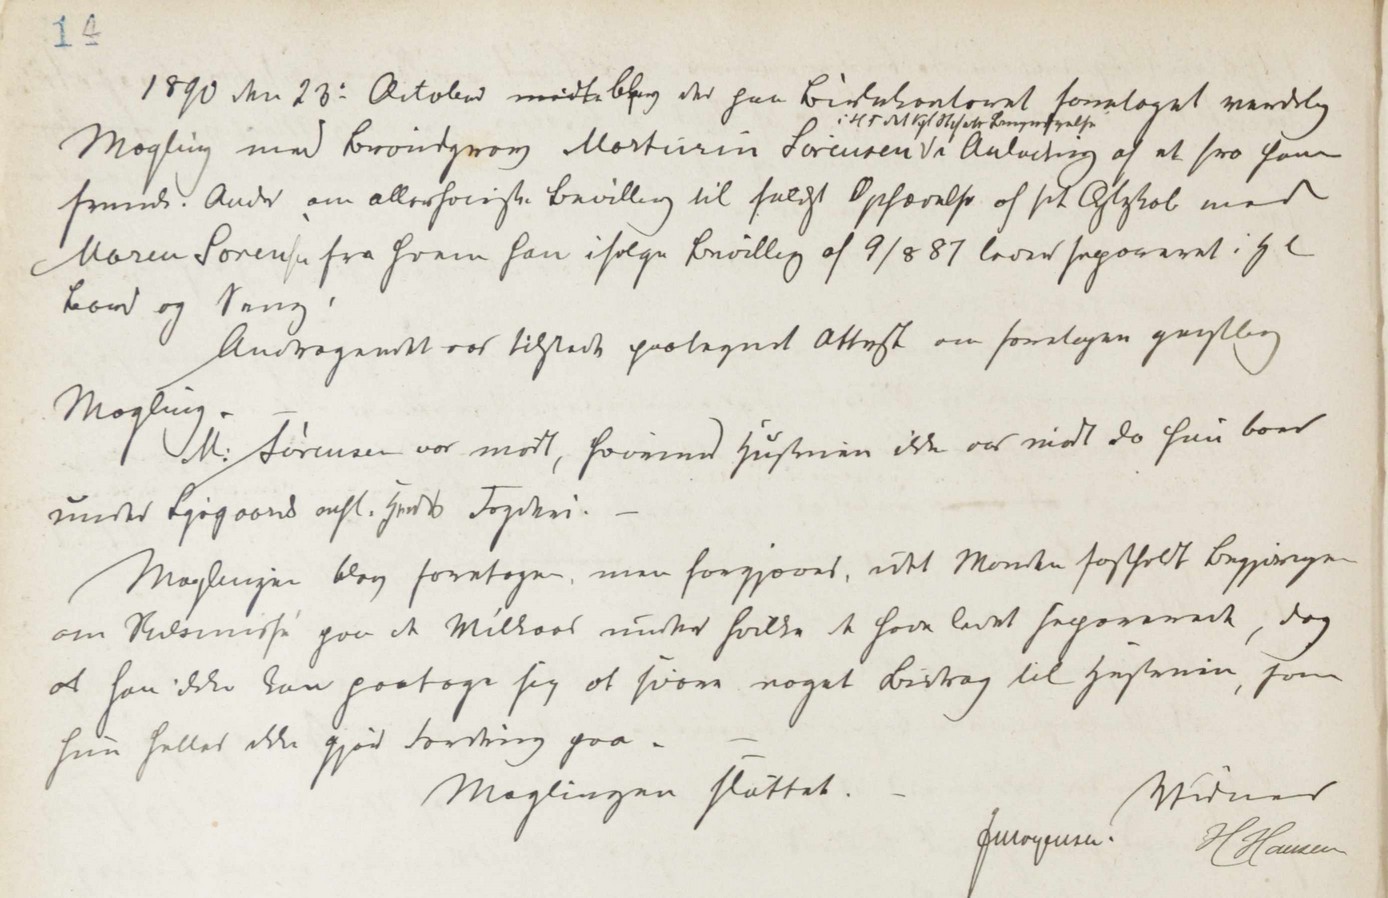 14
1890 den 23: October mødte blev der paa Birkekontoret foretaget verdslig
i H. t. det kgl
Mægling med Brøndgraver Martinin Sørensen i Anledning af et fra ham
fremk. Andr om allerhøieste Bevilling til fuldst Ophævelse af sit Ægteskab med
Maren Sørensen fra hvem han ifølge Bevilling af 9/8 87 lever separeret i H t
Bord og Seng.
Andragendet var tilstede paategnet Attest om foretagen geistlig
Mægling. —
M: Sørensen var mødt, hvorimod Hustruen ikke var mødt da hun boer
under Fogderi. —
Mæglingen blev foretagen, men forgjæves, idet Manden fastholdt Begjæringen
om Skilsmisse paa de Vilkaar under hvilke de have levet separerede, dog
at han ikke kan paatage sig at svare noget Bidrag til Hustruen, som
hun heller ikke gjør Fordring paa. —
Mæglingen sluttet. —
Vidner
J Mogensen. H Hansen